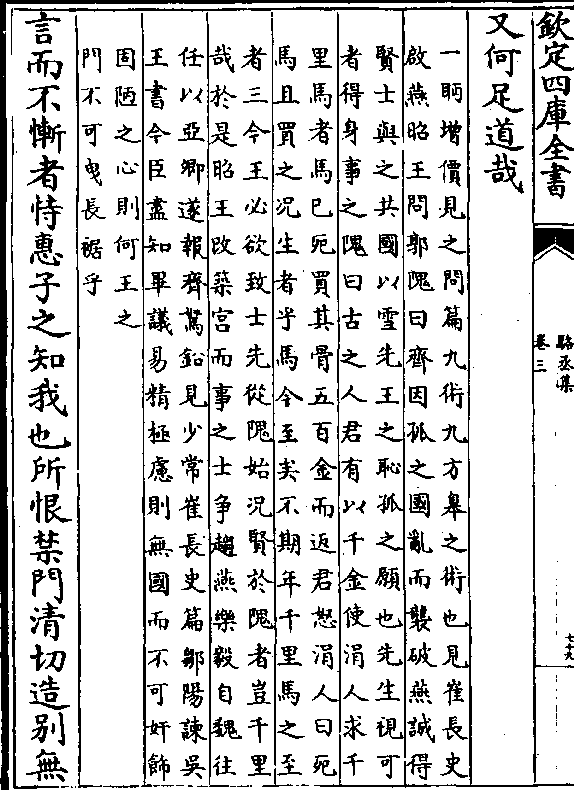 欽定四庫全書
駱丞集
卷三
七十九
又何足道哉
一眄增價見之問篇九術九方皋之術也見崔長史
啟燕昭王問郭隗曰齊因孤之國亂而襲破燕誠得
賢士與之共國以雪先王之恥孤之願也先生視可
者得身事之隗曰古之人君有以千金使涓人求千
里馬者馬已死買其骨五百金而返君怒涓人曰死
馬且買之况生者乎馬今至矣不期年千里馬之至
者三今王必欲致士先從隗始况賢於隗者豈千里
哉於是昭王改築宫而事之士爭趨燕樂毅自魏往
任以亞卿遂報齊駑鉛見少常崔長史篇鄒陽諫吳
王書今臣盡知畢議易精極慮則無國而不可奸飾
固陋之心則何王之
門不可曳長裾乎
言而不慚者恃惠子之知我也所恨禁門清切造别無